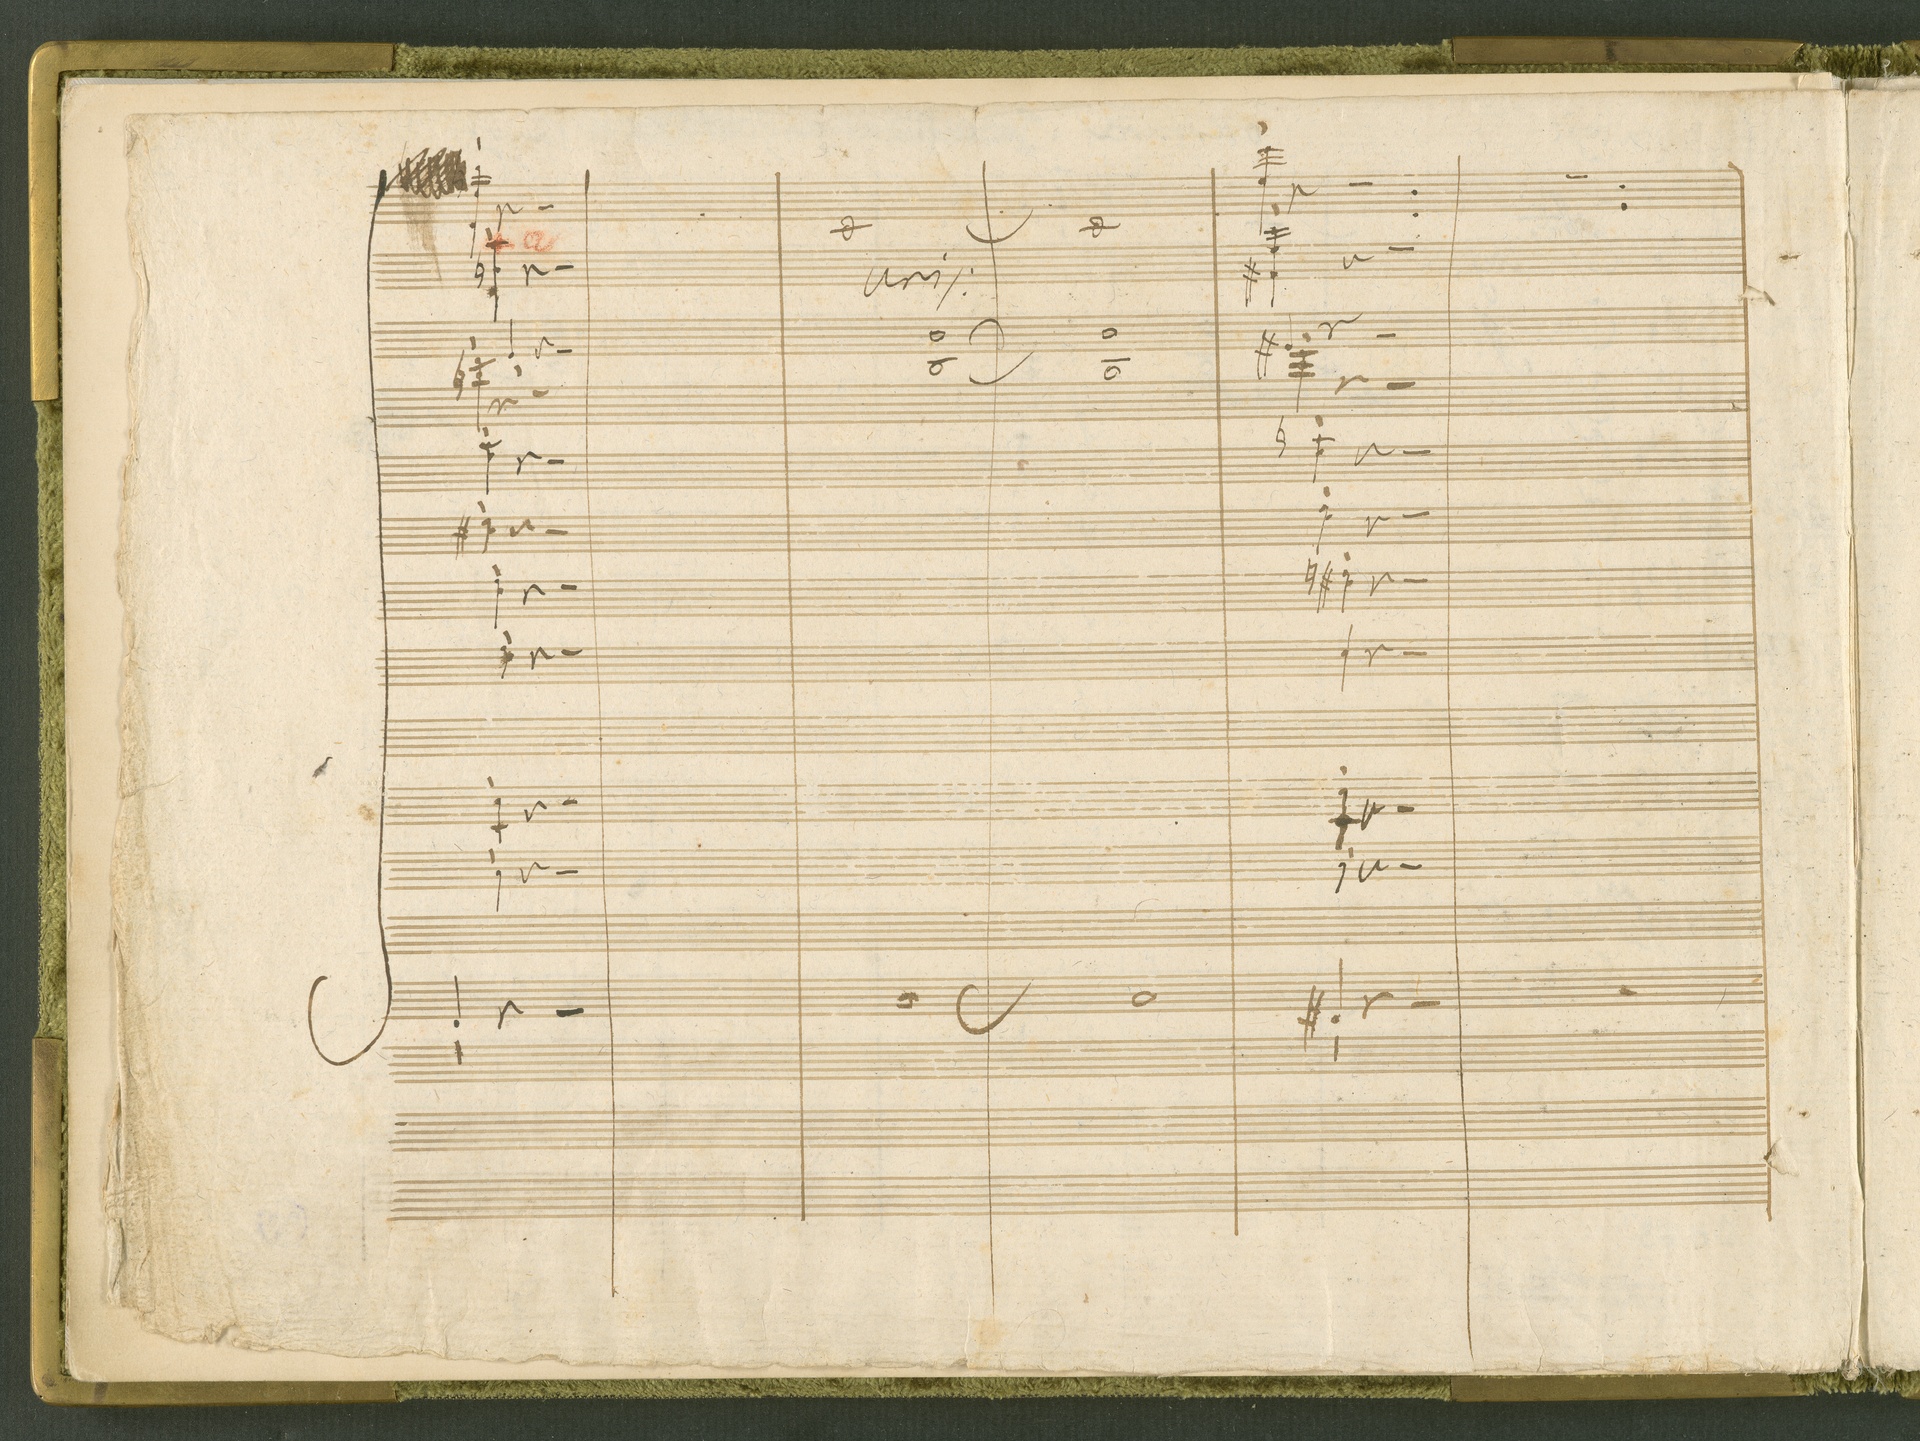 a
unis: